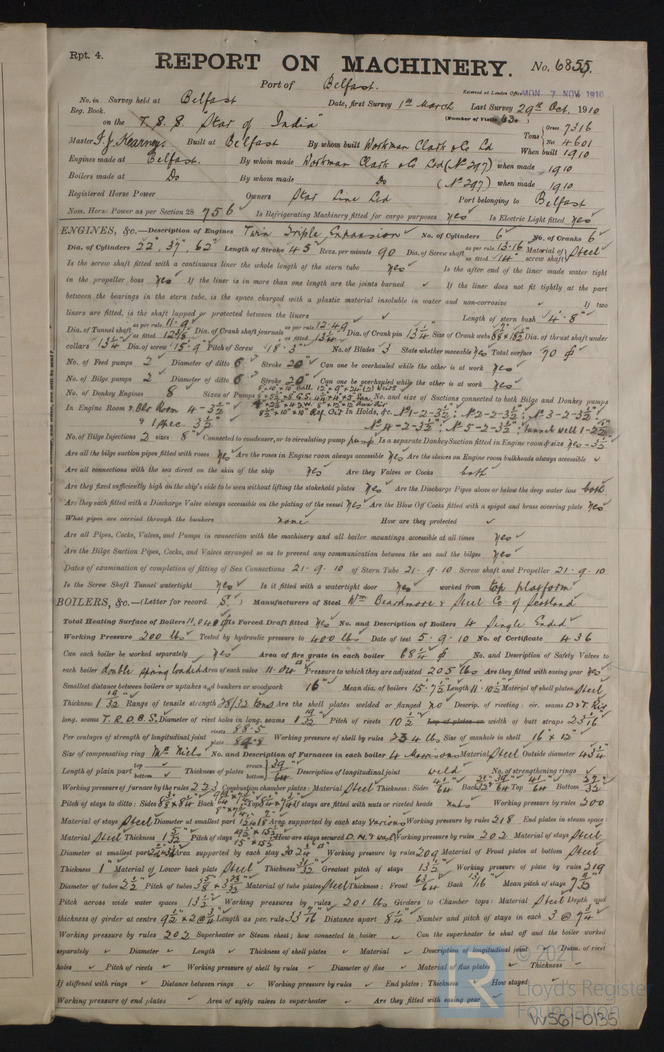 Rpt. 4.
REPORT ON MACHINERY.
No. 6855.
Port of Belfast.
Received at London Office MON. 7 NOV 1910
No. in Survey held at Belfast Date, first Survey 1st March Last Survey 29th Oct. 1910
Reg. Book. (Number of Visits 63)
on the T.S.S. Star of India Tons Gross 7316 Net 4601
Master F. J. Kearney. Built at Belfast By whom built Workman Clark & Co Ld When built 1910
Engines made at Belfast. By whom made Workman Clark & Co Ltd (No 297) when made 1910
Boilers made at Do By whom made Do (No 297) when made 1910
Registered Horse Power Owners Star Line Ltd Port belonging to Belfast
Nom. Horse Power as per Section 28 756 Is Refrigerating Machinery fitted for cargo purposes Yes Is Electric Light fitted Yes
ENGINES, &c.—Description of Engines Twin Triple Expansion No. of Cylinders 6 No. of Cranks 6
Dia. of Cylinders 22" 37" 62" Length of Stroke 45" Revs. per minute 90 Dia. of Screw shaft as per rule 13.16 as fitted 14" Material of screw shaft Steel
Is the screw shaft fitted with a continuous liner the whole length of the stern tube Yes Is the after end of the liner made water tight
in the propeller boss Yes If the liner is in more than one length are the joints burned ✓ If the liner does not fit tightly at the part
between the bearings in the stern tube, is the space charged with a plastic material insoluble in water and non-corrosive ✓ If two
liners are fitted, is the shaft lapped or protected between the liners ✓ Length of stern bush 4'-8"
Dia. of Tunnel shaft as per rule 11.9 as fitted Dia. of Crank shaft journals as per rule 12.49 as fitted 13¼ Dia. of Crank pin 13¼ Size of Crank webs Dia. of thrust shaft under
collars 13¼ Dia. of screw 15'-9" Pitch of Screw 18'-3" No. of Blades 3 State whether moveable Yes Total surface 70
No. of Feed pumps 2 Diameter of ditto 6" Stroke 20" Can one be overhauled while the other is at work Yes
No. of Bilge pumps 2 Diameter of ditto 6" Stroke 20" Can one be overhauled while the other is at work Yes
No. of Donkey Engines 8 Sizes of Pumps No. and size of Suctions connected to both Bilge and Donkey pumps
In Engine Room & Blr Room 4-3½" In Holds, &c. No 1-2-3½" No 2-2-3½" No 3-2-3½"
No 4-2-3½" No 5-2-3½"
No. of Bilge Injections 2 sizes 8" Connected to condenser, or to circulating pump pump Is a separate Donkey Suction fitted in Engine room & size Yes-3½"
Are all the bilge suction pipes fitted with roses Yes Are the roses in Engine room always accessible Yes Are the sluices on Engine room bulkheads always accessible ✓
Are all connections with the sea direct on the skin of the ship Yes Are they Valves or Cocks both
Are they fixed sufficiently high on the ship's side to be seen without lifting the stokehold plates Yes Are the Discharge Pipes above or below the deep water line both
Are they each fitted with a Discharge Valve always accessible on the plating of the vessel Yes Are the Blow Off Cocks fitted with a spigot and brass covering plate Yes
What pipes are carried through the bunkers none How are they protected ✓
Are all Pipes, Cocks, Valves, and Pumps in connection with the machinery and all boiler mountings accessible at all times Yes
Are the Bilge Suction Pipes, Cocks, and Valves arranged so as to prevent any communication between the sea and the bilges Yes
Dates of examination of completion of fitting of Sea Connections 21.9.10 of Stern Tube 21.9.10 Screw shaft and Propeller 21.9.10
Is the Screw Shaft Tunnel watertight Yes Is it fitted with a watertight door Yes worked from top platform
BOILERS, &c.—(Letter for record S.) Manufacturers of Steel Wm Beardmore & Steel Co of Scotland
Total Heating Surface of Boilers Is Forced Draft fitted Yes No. and Description of Boilers 4 Single Ended
Working Pressure 200 lbs Tested by hydraulic pressure to 400 lbs Date of test 5.9.10 No. of Certificate 436
Can each boiler be worked separately Yes Area of fire grate in each boiler 68¼ No. and Description of Safety Valves to
each boiler double spring loaded Area of each valve 11.04 Pressure to which they are adjusted 205 lbs Are they fitted with easing gear Yes
Smallest distance between boilers or uptakes and bunkers or woodwork 16" Mean dia. of boilers 15'-7½ Length 11'-10½ Material of shell plates Steel
Thickness Range of tensile strength 28/32 tons Are the shell plates welded or flanged no Descrip. of riveting: cir. seams D & T Riv
long. seams T.R.D.B.S. Diameter of rivet holes in long. seams Pitch of rivets 10½ Lap of plates or width of butt straps
Per centages of strength of longitudinal joint rivets 88.5 plate Working pressure of shell by rules 234 lbs Size of manhole in shell 16" x 12"
Size of compensating ring McNeils No. and Description of Furnaces in each boiler 4 Morrisons Material Steel Outside diameter
Length of plain part top bottom Thickness of plates crown bottom Description of longitudinal joint weld No. of strengthening rings ✓
Working pressure of furnace by the rules 223 Combustion chamber plates: Material Steel Thickness: Sides Back Top Bottom
Pitch of stays to ditto: Sides Back Top If stays are fitted with nuts or riveted heads nuts Working pressure by rules 200
Material of stays Steel Diameter at smallest part Area supported by each stay Various Working pressure by rules 218 End plates in steam space:
Material Steel Thickness Pitch of stays How are stays secured Working pressure by rules 202 Material of stays Steel
Diameter at smallest part Area supported by each stay Working pressure by rules 209 Material of Front plates at bottom Steel
Thickness 1" Material of Lower back plate Steel Thickness Greatest pitch of stays 13½ Working pressure of plate by rules 219
Diameter of tubes 2½ Pitch of tubes Material of tube plates Steel Thickness: Front Back Mean pitch of stays
Pitch across wide water spaces 13½ Working pressures by rules 201 lbs Girders to Chamber tops: Material Steel Depth and
thickness of girder at centre Length as per rule Distance apart 8¼ Number and pitch of stays in each
Working pressure by rules 202 Superheater or Steam chest; how connected to boiler ✓ Can the superheater be shut off and the boiler worked
separately ✓ Diameter ✓ Length ✓ Thickness of shell plates ✓ Material ✓ Description of longitudinal joint ✓ Diam. of rivet
holes ✓ Pitch of rivets ✓ Working pressure of shell by rules ✓ Diameter of flue ✓ Material of flue plates ✓ Thickness ✓
If stiffened with rings ✓ Distance between rings ✓ Working pressure by rules ✓ End plates: Thickness ✓ How stayed ✓
Working pressure of end plates ✓ Area of safety valves to superheater ✓ Are they fitted with easing gear ✓
© 2021
Lloyd's Register
Foundation
W561-0135